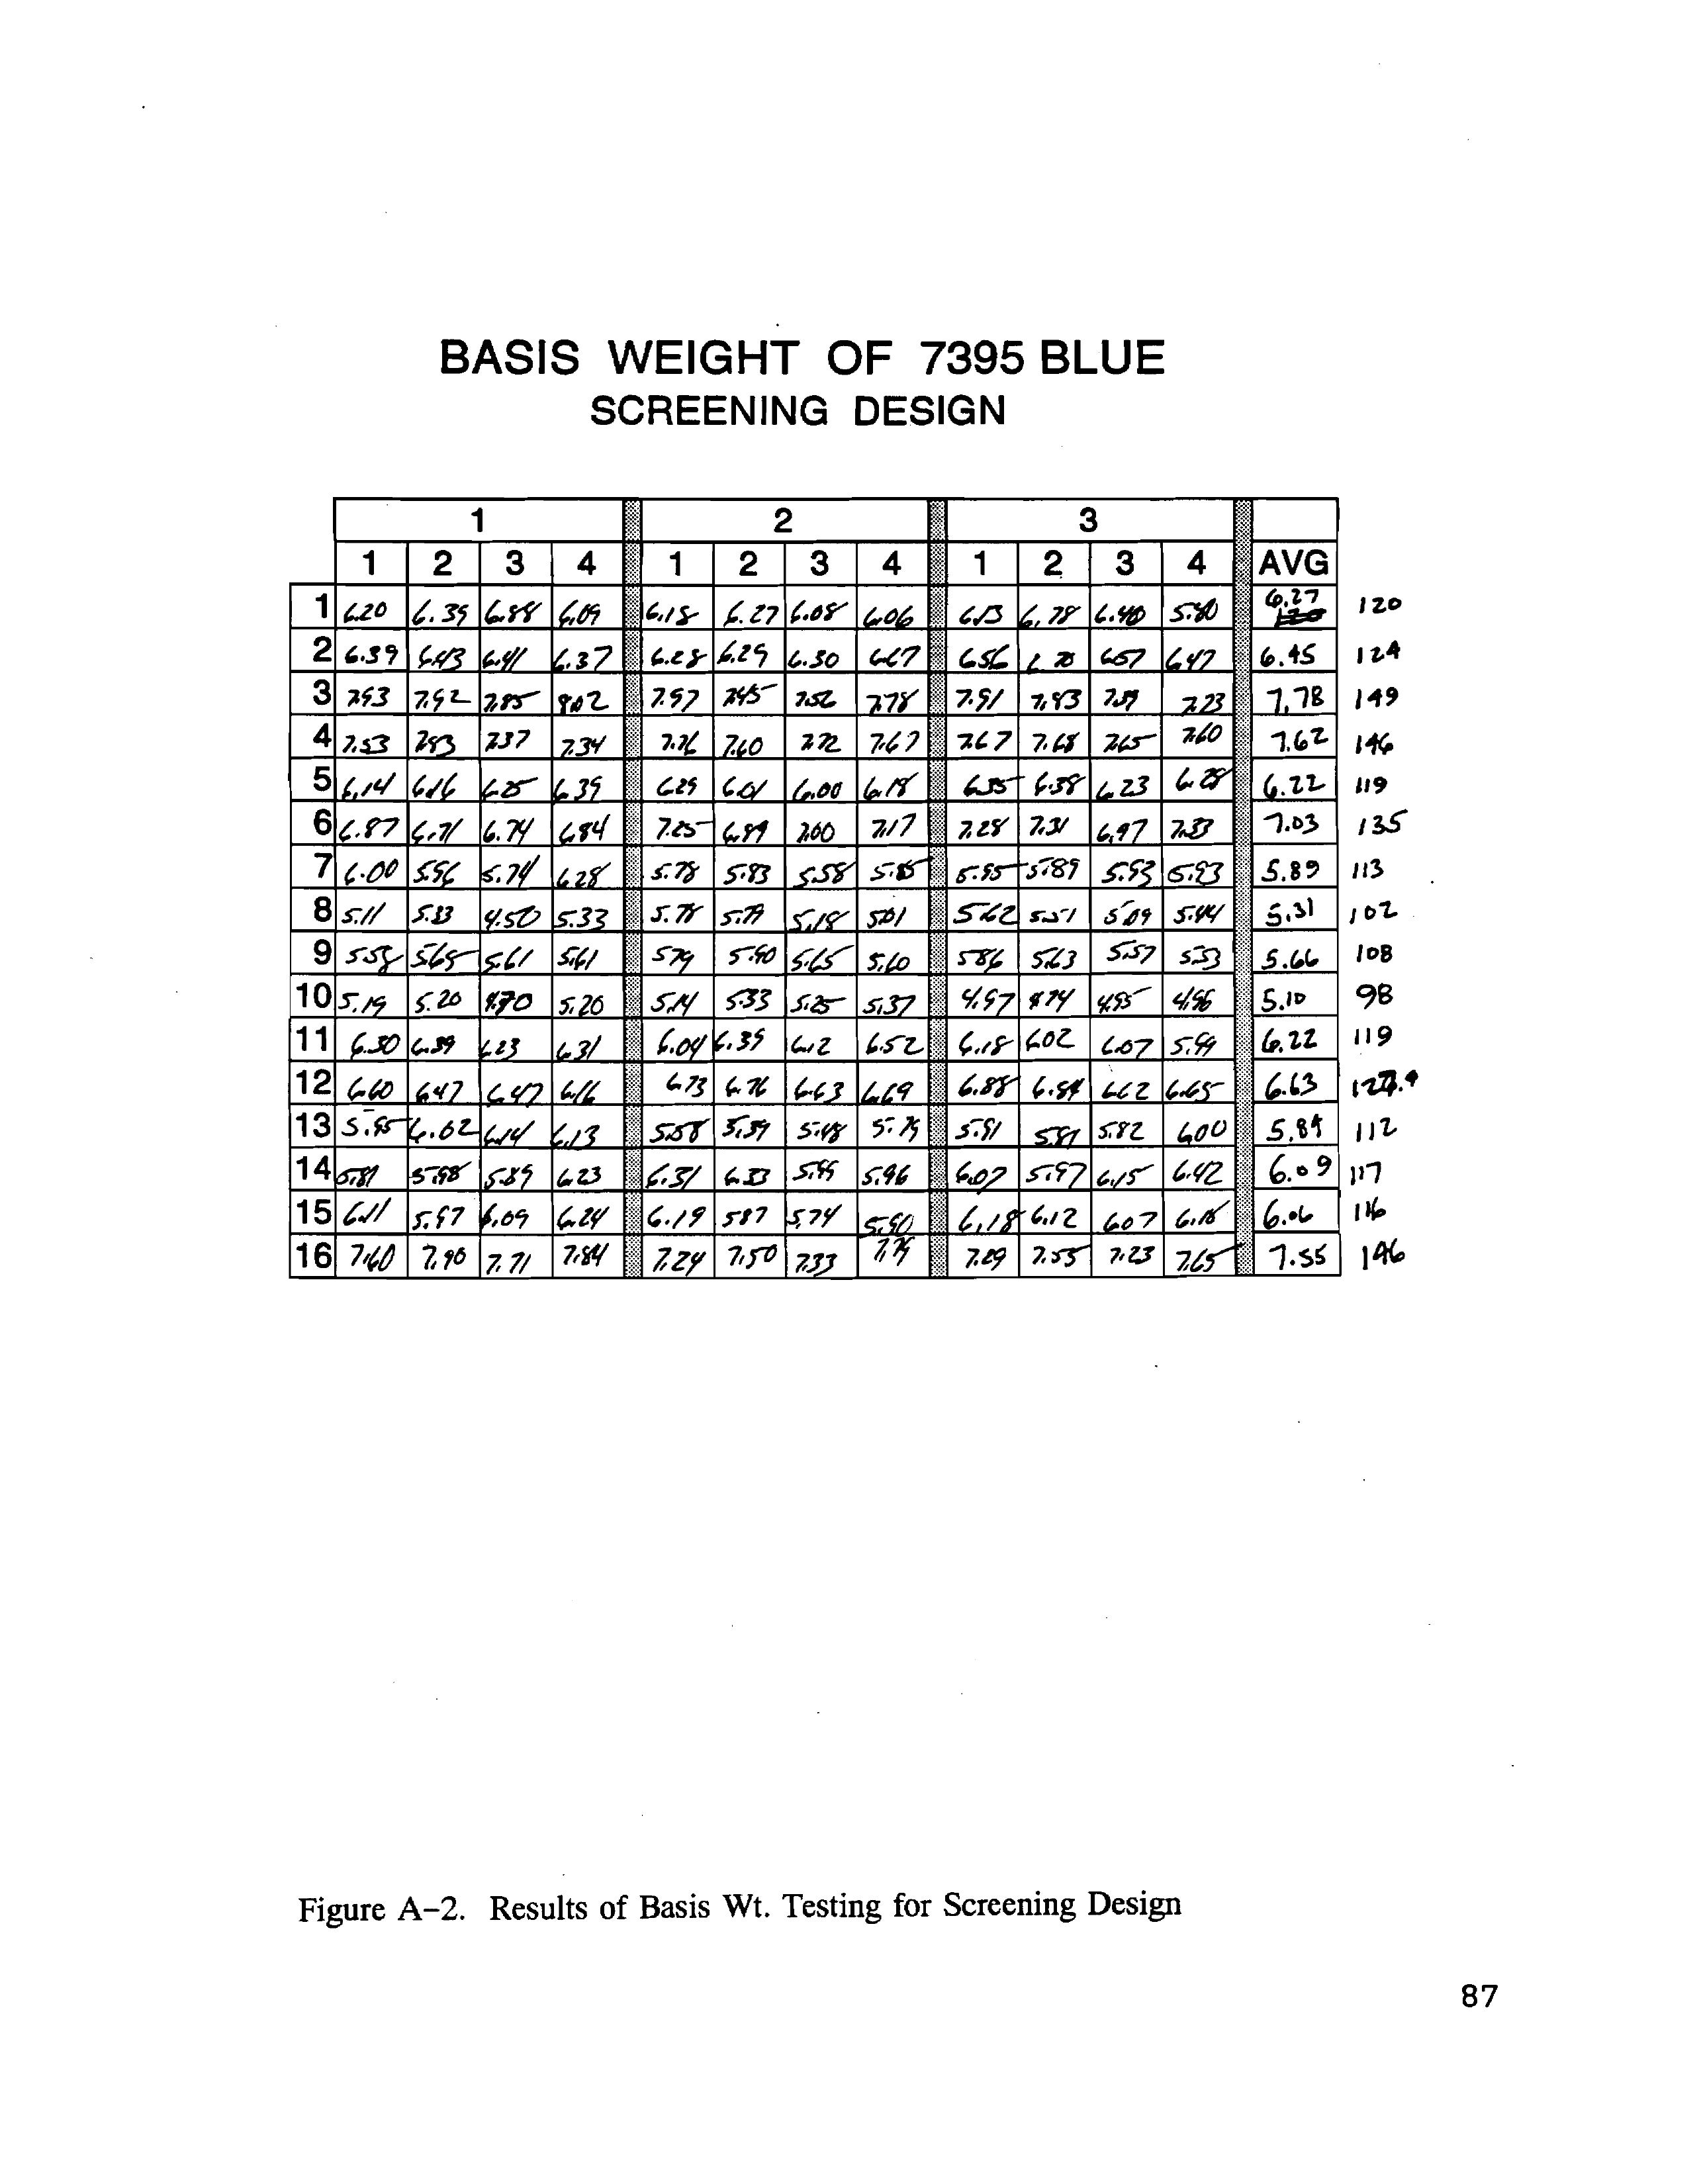 BASIS WEIGHT OF 7395 BLUE
SCREENING DESIGN
1 2 3
1 2 3 4 1 2 3 4 1 2 3 4 AVG
1 6.20 6.39 6.88 6.09 6.18 6.27 6.08 6.06 6.13 6.78 6.40 5.80 6.27 120
2 6.39 6.43 6.41 6.37 6.28 6.29 6.30 6.67 6.56 6.57 6.47 6.45 124
3 7.93 7.92 7.85 8.02 7.97 7.45 7.52 7.78 7.91 7.83 7.23 7.78 149
4 7.53 7.83 7.37 7.34 7.76 7.60 7.72 7.67 7.67 7.68 7.65 7.60 7.62 146
5 6.14 6.16 6.25 6.39 6.29 6.01 6.00 6.18 6.35 6.38 6.23 6.28 6.22 119
6 6.87 6.71 6.74 6.84 7.25 6.89 7.00 7.17 7.28 7.31 6.97 7.33 7.03 135
7 6.00 5.96 5.74 6.28 5.78 5.83 5.58 5.85 5.95 5.89 5.93 5.93 5.89 113
8 5.11 5.33 4.50 5.33 5.78 5.79 5.18 5.01 5.62 5.51 5.09 5.44 5.31 102
9 5.58 5.65 5.61 5.61 5.79 5.90 5.65 5.60 5.86 5.63 5.57 5.53 5.66 108
10 5.19 5.20 4.70 5.20 5.14 5.33 5.25 5.37 4.97 4.74 4.95 4.96 5.10 98
11 6.30 6.39 6.23 6.31 6.04 6.35 6.12 6.52 6.18 6.02 6.07 5.99 6.22 119
12 6.60 6.47 6.47 6.16 6.73 6.76 6.63 6.69 6.88 6.84 6.62 6.65 6.63
13 5.95 6.02 6.14 6.13 5.58 5.39 5.48 5.75 5.91 5.81 5.82 6.00 5.84 112
14 5.81 5.98 5.89 6.23 6.31 6.33 5.95 5.96 6.07 5.97 6.15 6.42 6.09 117
15 6.11 5.97 6.09 6.24 6.19 5.87 5.74 5.90 6.18 6.12 6.07 6.18 6.06 116
16 7.60 7.90 7.71 7.84 7.24 7.50 7.33 7.75 7.29 7.55 7.23 7.65 7.55 146
Figure A-2. Results of Basis Wt. Testing for Screening Design
87